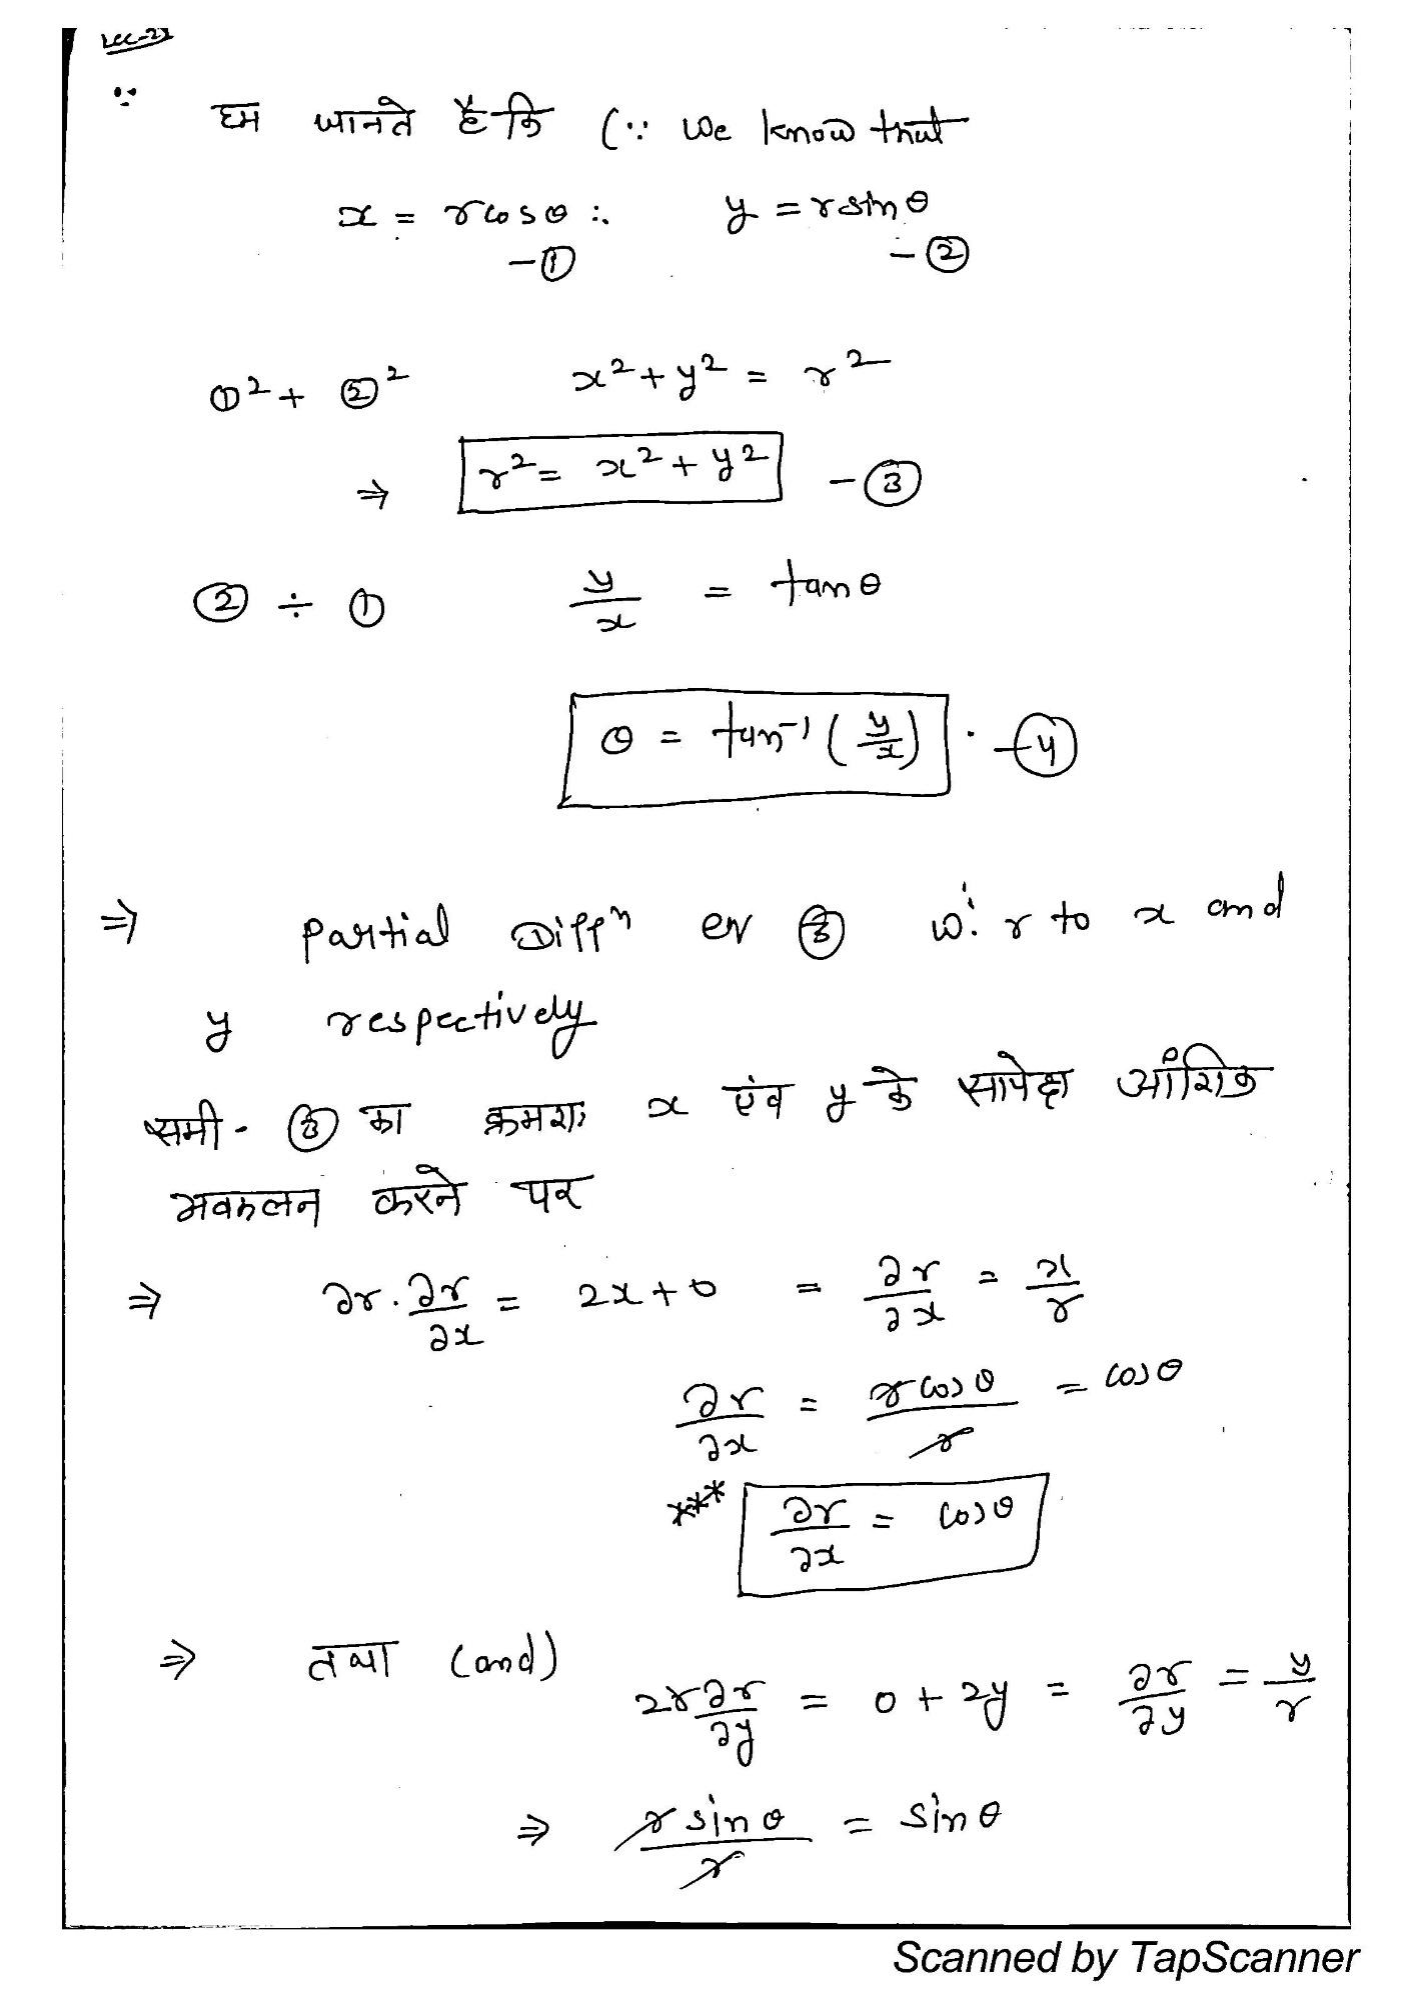 Lec-22
∵ हम जानते है कि (∵ We know that
x = r cos θ ∴ y = r sin θ
— ① — ②
①² + ②² x² + y² = r²
⇒ r² = x² + y² — ③
② ÷ ① y/x = tan θ
θ = tan⁻¹ (y/x) . — ④
⇒ Partial Diffⁿ eq ③ w. r to x and
y respectively
समी. ③ का क्रमशः x एंव y के सापेक्ष आंशिक
अवकलन करने पर
⇒ 2r . ∂r/∂x = 2x + 0 = ∂r/∂x = x/r
∂r/∂x = r cos θ / r = cos θ
*** ∂r/∂x = cos θ
⇒ तथा (and)
2r ∂r/∂y = 0 + 2y = ∂r/∂y = y/r
⇒ r sin θ / r = sin θ
Scanned by TapScanner